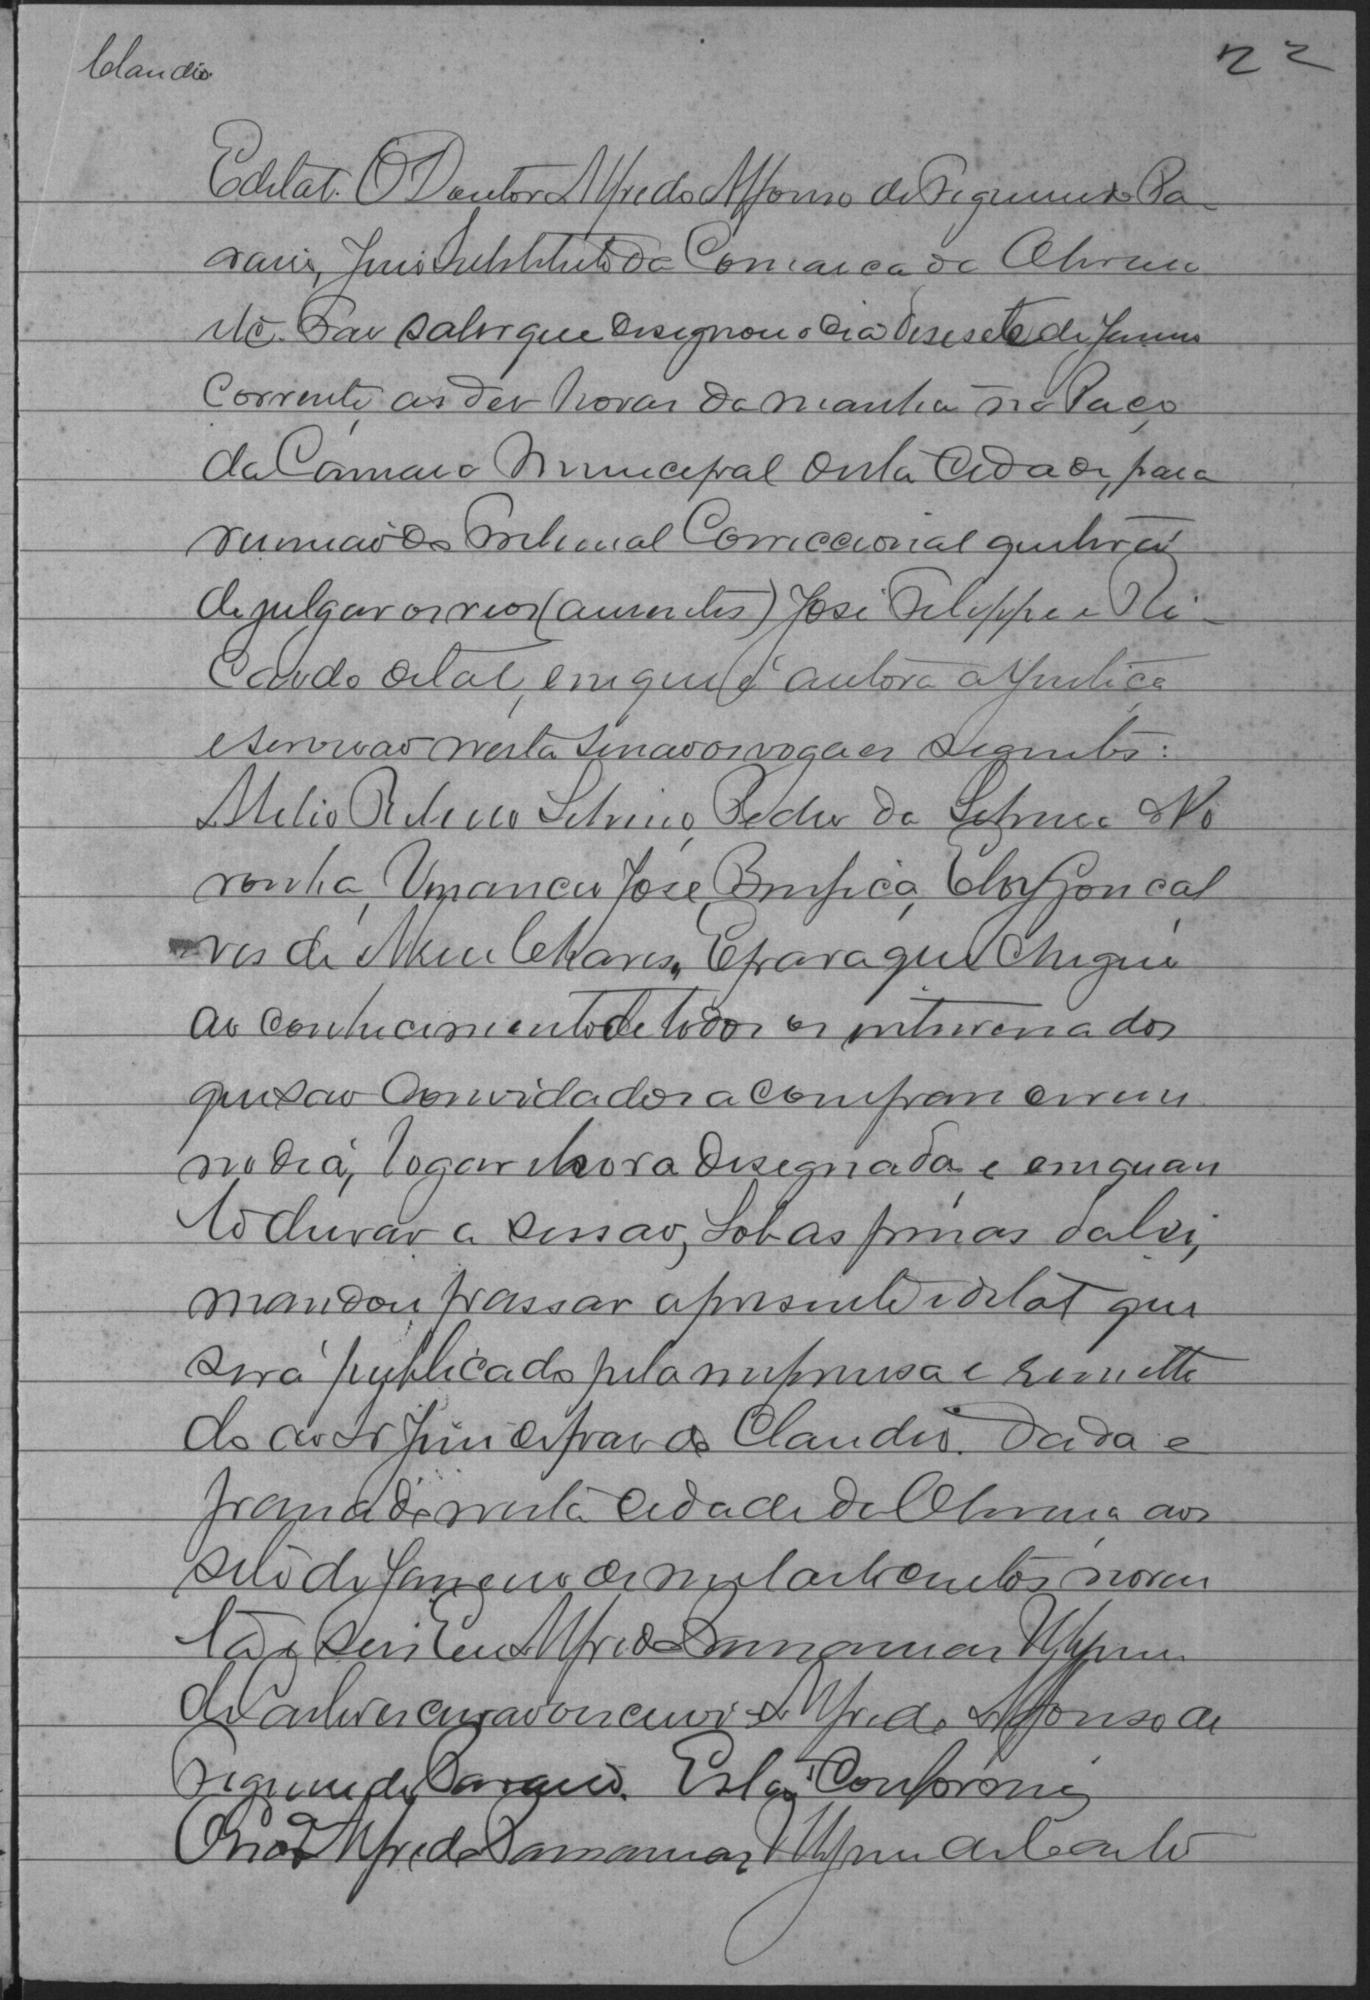 Claudio
22
Edital. O Doutor Alfredo Affonso de Figueiredo Pa-
raiso, Juis Substituto da Comarca de Oliveira
etc. Faz saber que designou o dia desesete de Janeiro
corrente, as dez horas da manhã no Paço
da Camara Municipal desta cidade, para
reunião do Tribunal Correccional que terá
de julgar os reos (ausentes) José Felippe e Ri-
cardo de tal, em que é autora a Justiça
e servirão nesta sessão os vogaes seguintes:
Ribeiro Silvino, Pedro da Silveira No
ronha, Venancio José Bemfica, Eloy Goncal
ves de Chaves. E para que chegue
ao conhecimento de todos os interessados
que são convidados a comparecerem
no dia, logar e hora designada e emquan
to durar a sessão, sob as penas da lei,
mandou passar o presente edital que
será publicado pela imprensa e remetti
do ao Sr Juis de paz do Claudio. Dada e
passado nesta cidade de Oliveira aos
sete de Janeiro de mil oitocentos noven
ta e seis Eu Alfredo
de Castro escrivão o escrevi Alfredo Affonso de
Figueiredo Paraiso. Está Conforme
Alfredo de Castro